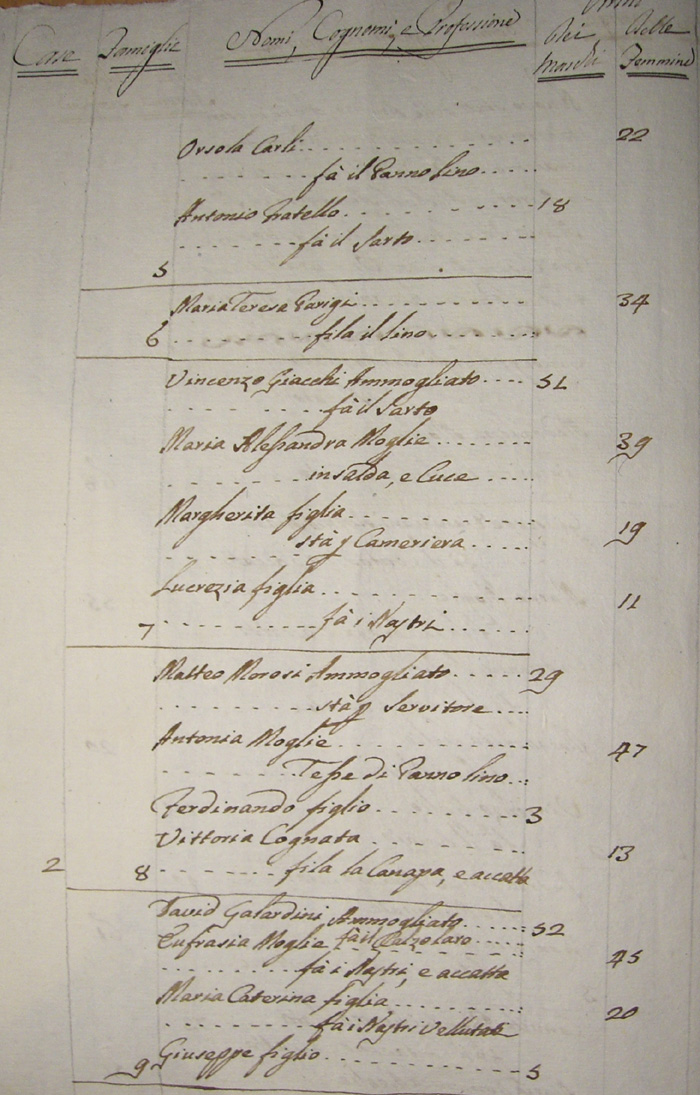 Anni
Case Famiglie Nomi, Cognomi, e Professione Dei Maschi Delle Femmine
Orsola Carli 22
fà il Panno lino
Antonio Fratello 18
fà il Sarto
5
Maria Teresa Parigi 34
6 fila il lino
Vincenzo Giacchi Ammogliato 51
fà il Sarto
Maria Alessandra Moglie 39
insalda, e Cuce
Margherita figlia 19
stà p Cameriera
Lucrezia figlia 11
7 fà i Nastri
Matteo Morosi Ammogliato 29
stà p Servitore
Antonia Moglie 47
Tesse di Panno lino
Ferdinando figlio 3
Vittoria Cognata 13
2 8 fila la Canapa, e accatta
David Galardini Ammogliato 52
Eufrasia Moglie fà il Calzolaro
fà i Nastri, e accatta 45
Maria Caterina figlia 20
fà i Nastri Vellutati
9 Giuseppe figlio 5